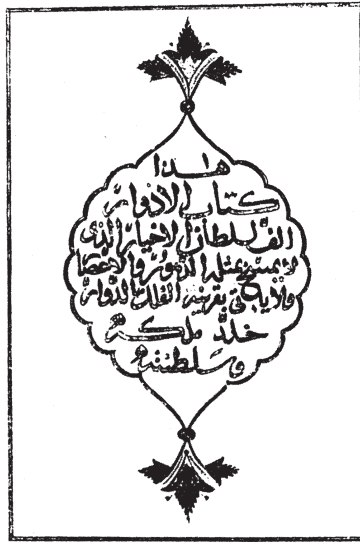 هذا
كتاب الادوار
الف لسلطان الاخيار الذى
لا يسمح بمثله الدهور والاعصار
ولا يأتى بقرينه الفلك الدوار
خلد ملكه
وسلطنته